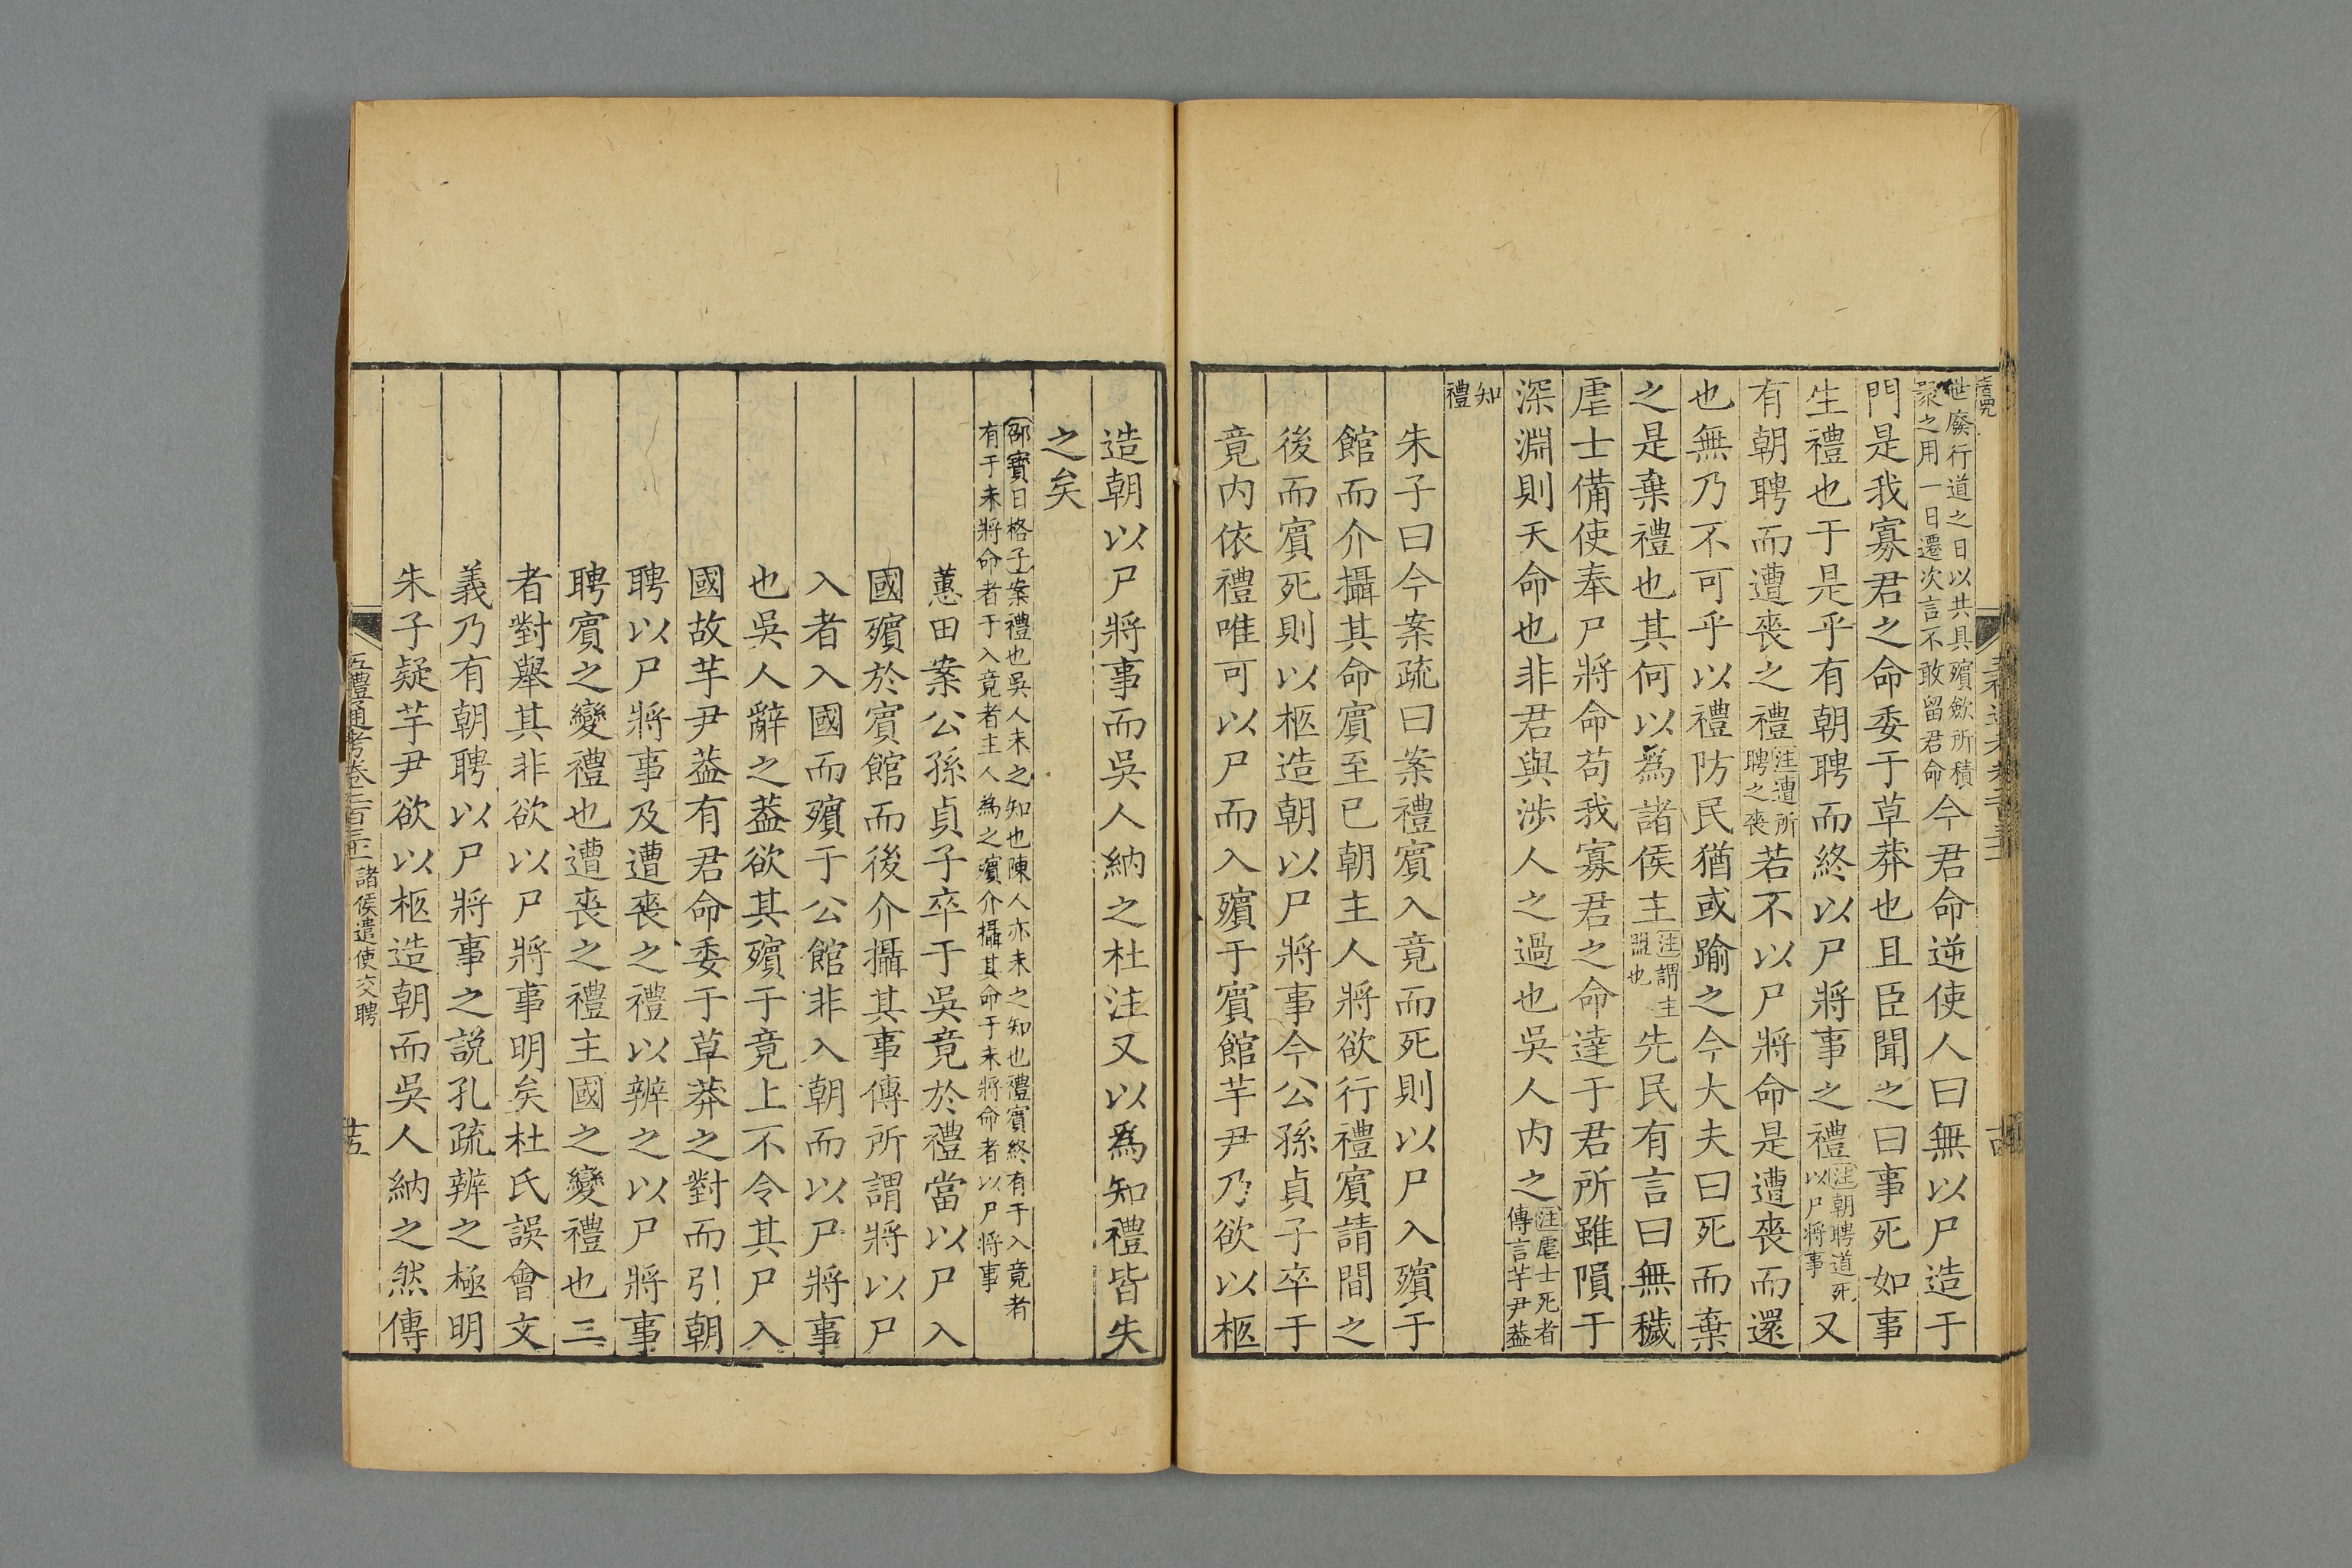 世廢行道之日以共具殯歛所積
眾之用一日遷次言不敢留君命今君命逆使人曰無以尸造于
門是我寡君之命委于草莽也且臣聞之曰事死如事
生禮也于是乎有朝聘而終以尸將事之禮注朝聘道死以尸將事又
有朝聘而遭喪之禮注遭所聘之喪若不以尸將命是遭喪而還
也無乃不可乎以禮防民猶或踰之今大夫曰死而棄
之是棄禮也其何以爲諸侯主注謂主盟也先民有言曰無穢
虐士備使奉尸將命苟我寡君之命達于君所雖隕于
深淵則天命也非君與涉人之過也吳人内之注虐士死者傳言芋尹葢
知禮
朱子曰今案疏曰案禮賓入竟而死則以尸入殯于
館而介攝其命賓至已朝主人將欲行禮賓請間之
後而賓死則以柩造朝以尸將事今公孫貞子卒于
竟内依禮唯可以尸而入殯于賓館芋尹乃欲以柩
造朝以尸將事而吳人納之杜注又以爲知禮皆失
之矣
邵寶曰格子案禮也吳人未之知也陳人亦未之知也禮賓終有于入竟者
有于未將命者于入竟者主人為之殯介攝其命于未將命者以尸將事
蕙田案公孫貞子卒于吳竟於禮當以尸入
國殯於賓館而後介攝其事傳所謂將以尸
入者入國而殯于公館非入朝而以尸將事
也吳人辭之葢欲其殯于竟上不令其尸入
國故芋尹葢有君命委于草莽之對而引朝
聘以尸將事及遭喪之禮以辨之以尸將事
聘賓之變禮也遭喪之禮主國之變禮也三
者對舉其非欲以尸將事明矣杜氏誤會文
義乃有朝聘以尸將事之説孔疏辨之極明
朱子疑芋尹欲以柩造朝而吳人納之然傳
五禮通考卷二百三十二 諸侯遣使交聘